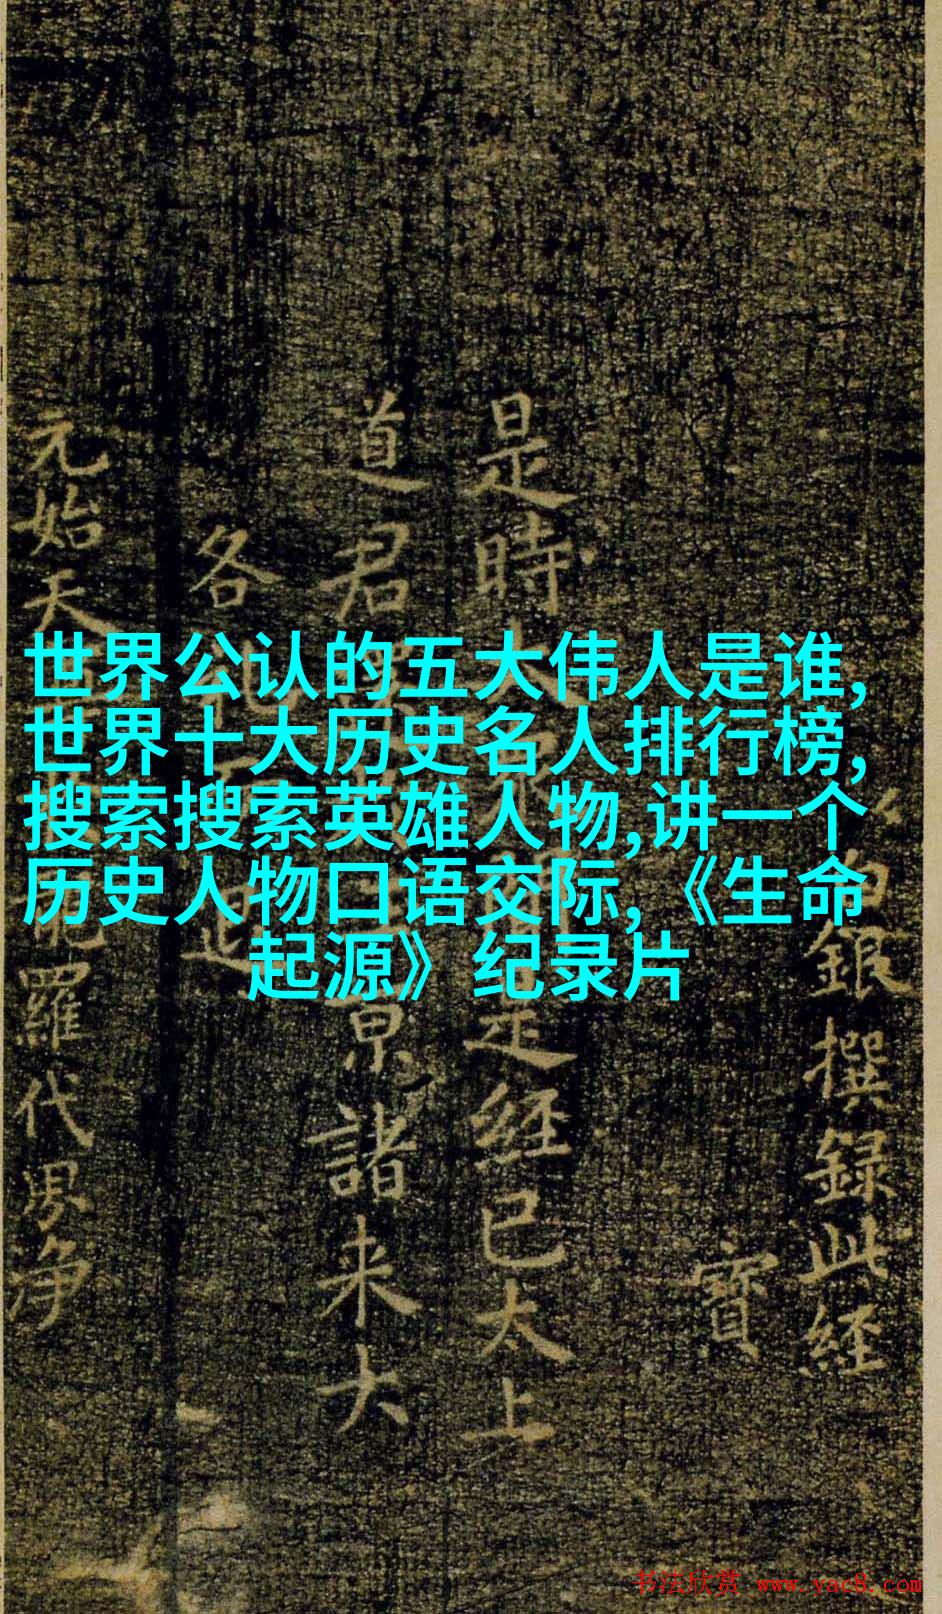 世界公认的五大伟人是谁,
世界十大历史名人排行榜,
搜索搜索英雄人物,讲一个
历史人物口语交际,《生命
起源》纪录片
銀撰録此經
寶
是時
是經已太上
道君
京諸来大
各
元始天
羅代界净
书法欣赏 www.yac8.com